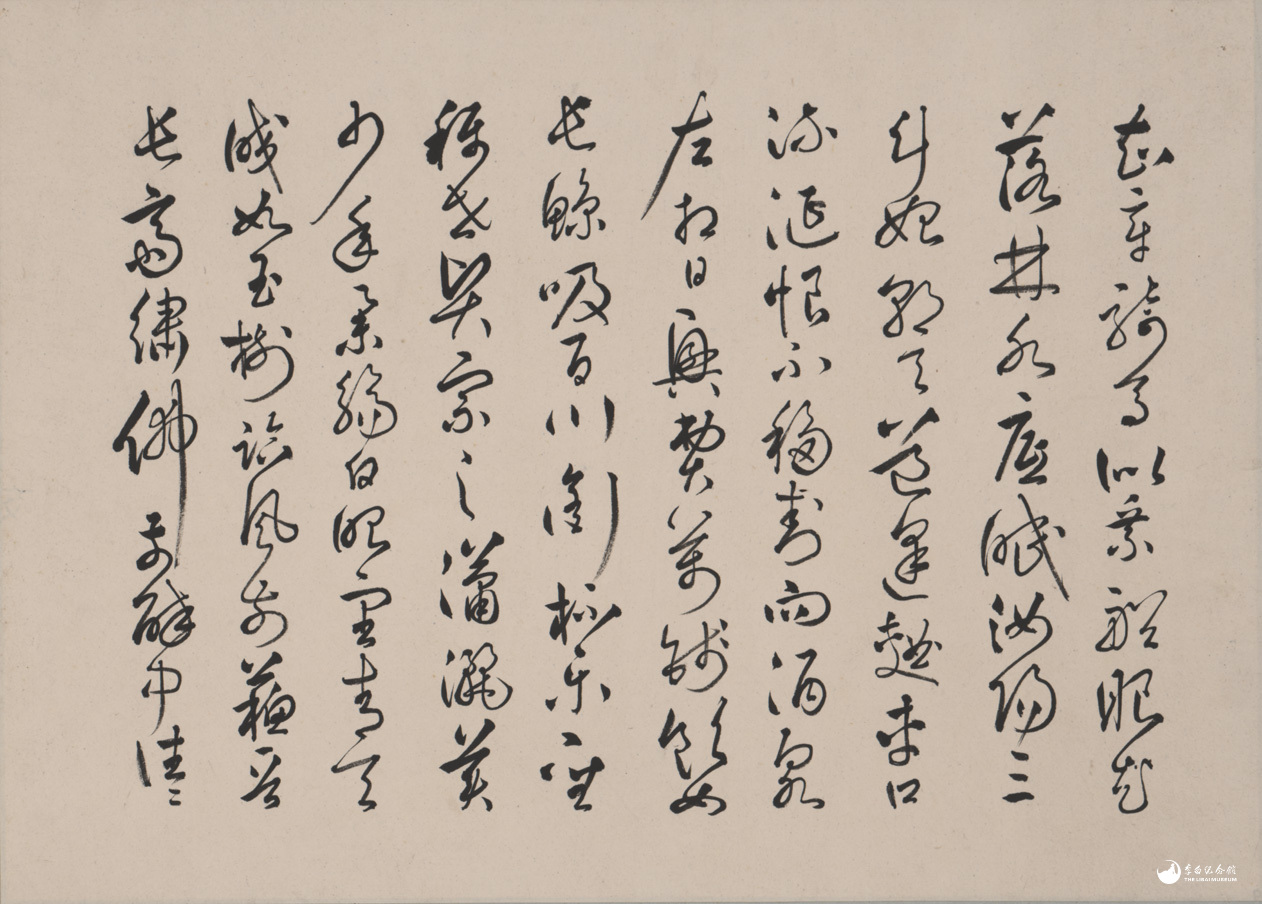 知章騎馬似乘船眼花
落井水底眠汝陽三
斗始朝天道逢麴車口
流涎恨不移封向酒泉
左相日興費萬錢飲如
長鯨吸百川銜杯樂聖
稱世賢宗之瀟灑美
少年舉觴白眼望青天
皎如玉樹臨風前蘇晉
長齋繡佛前醉中往〻
李白纪念馆
THE LIBAI MUSEUM